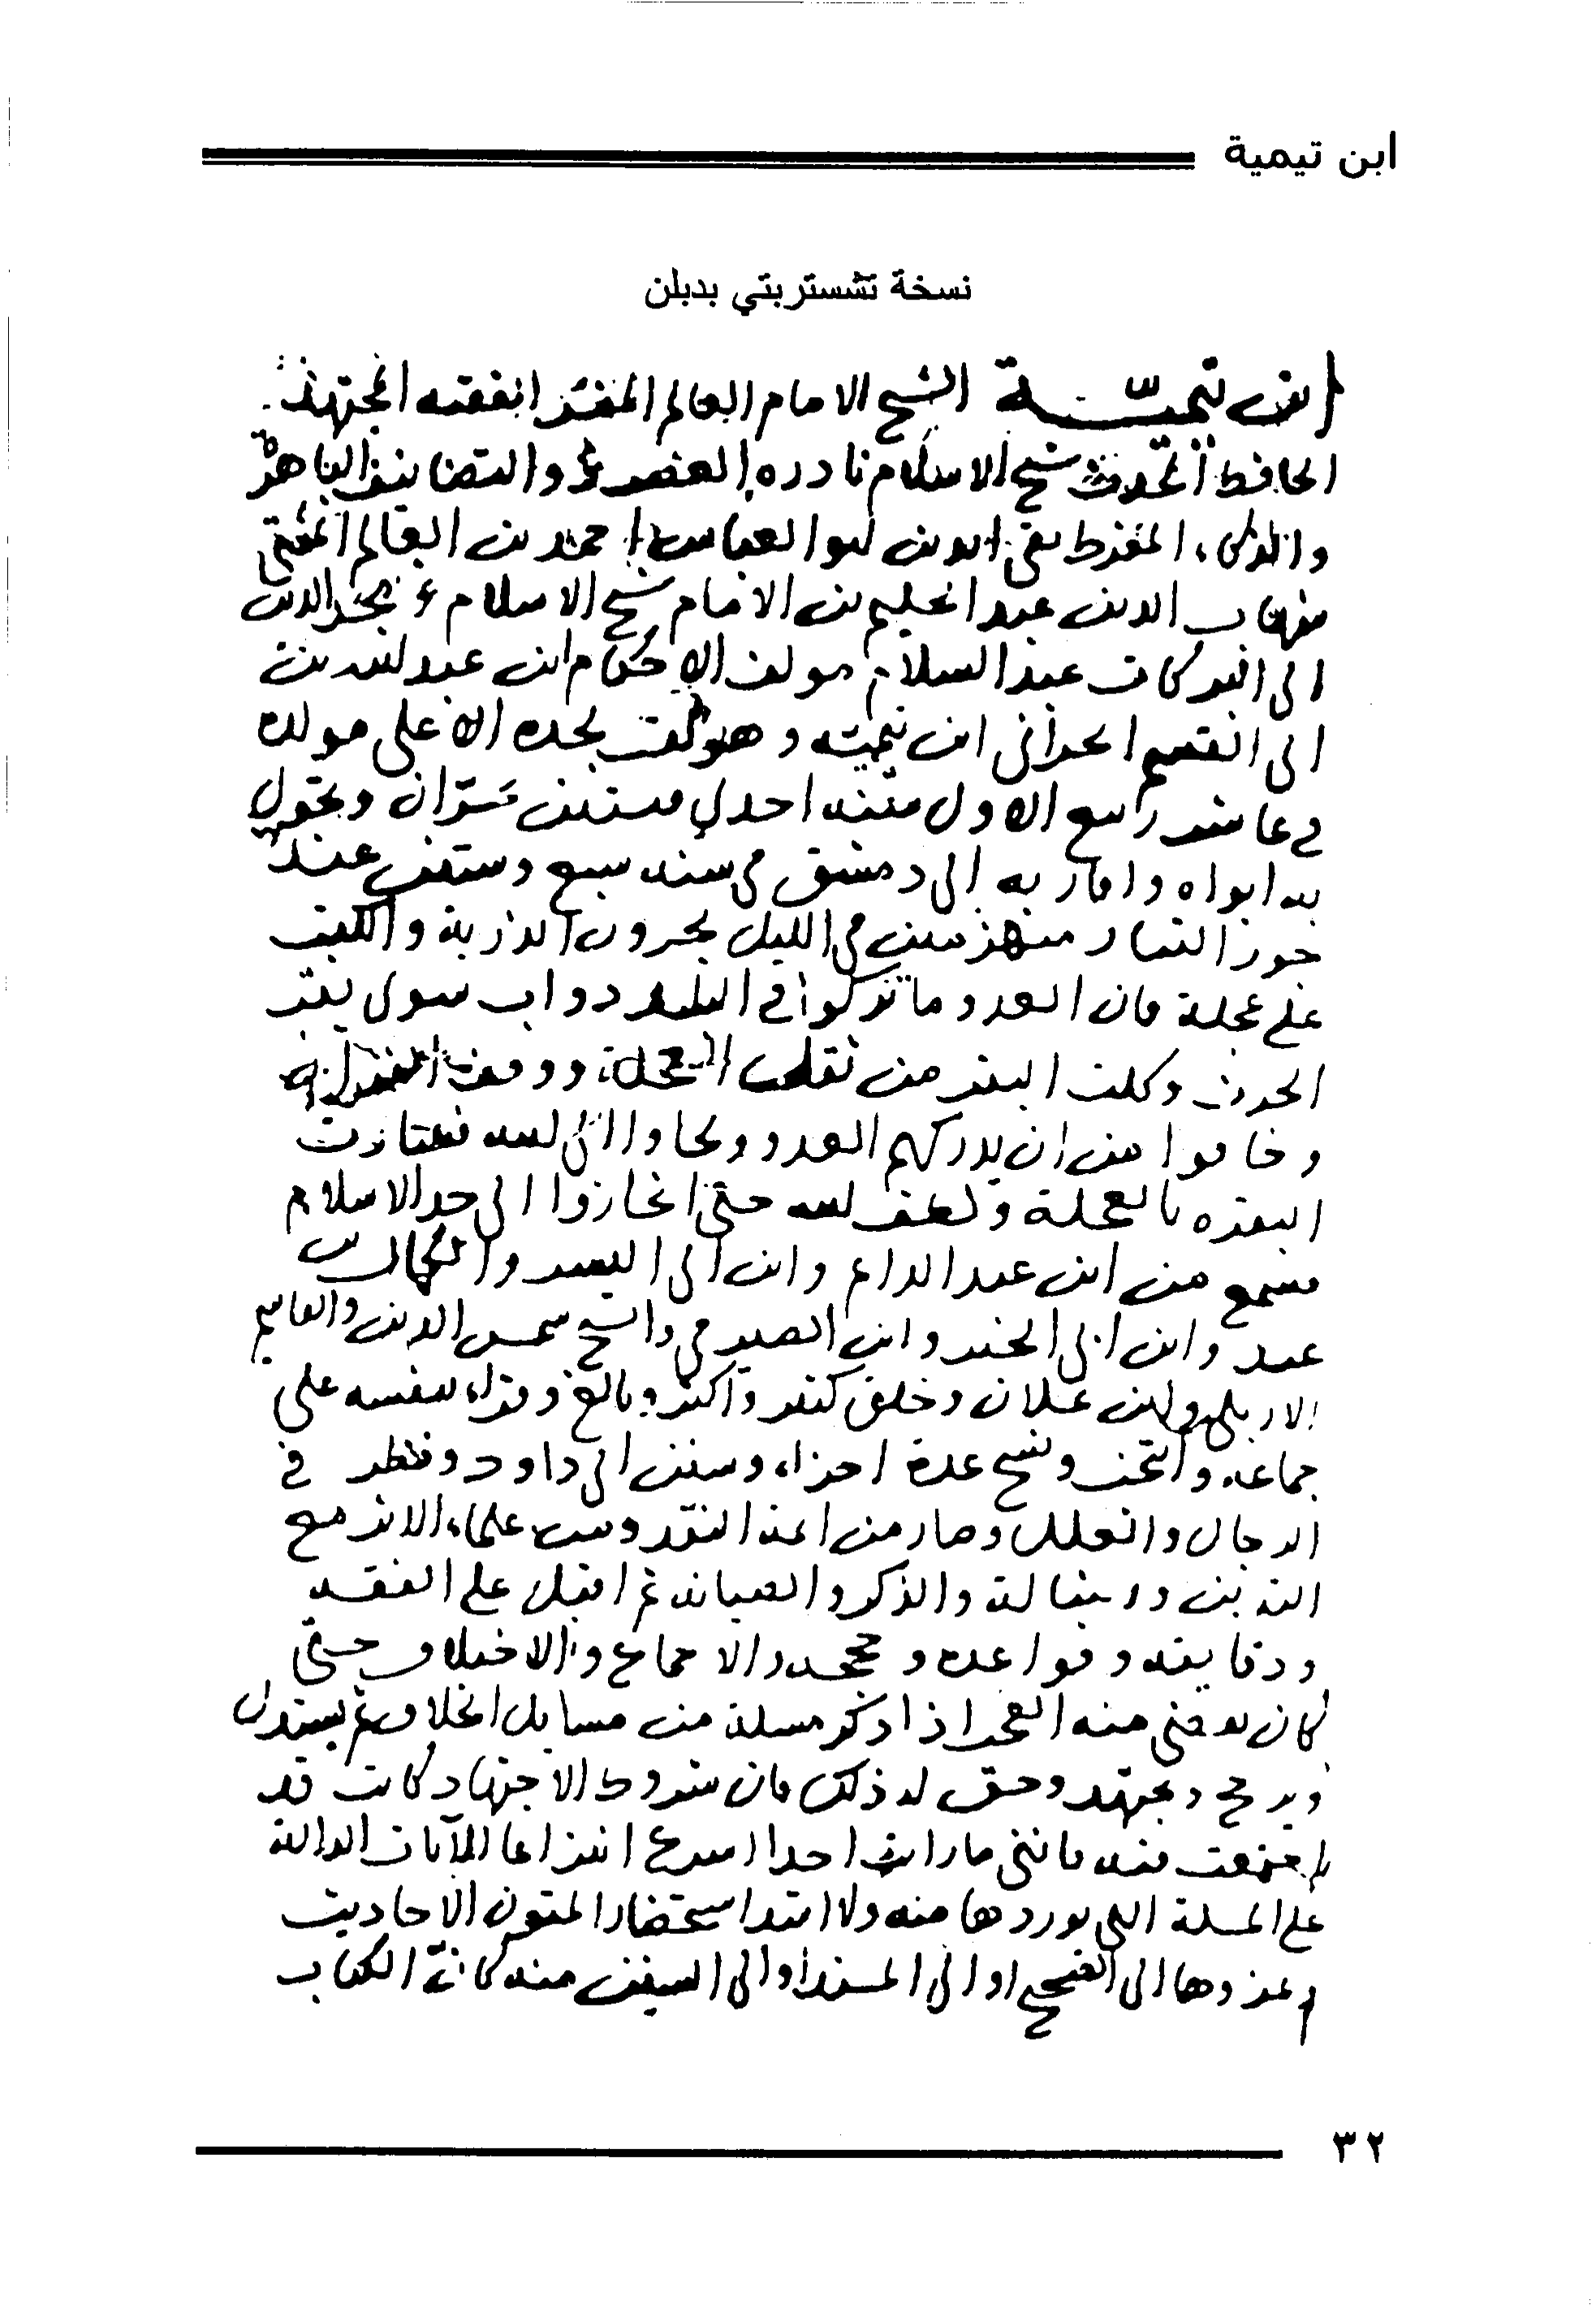 ابن تيمية
نسخة تشستربتي بدبلن
ابن تيميـــة الشيخ الامام العالم المفسر الفقيه المجتهد
الحافظ المحدث شيخ الاسلام نادرة العصر ذو التصانيف الباهرة
والذكاء المفرط تقي الدين ابو العباس احمد بن العالم المفتي
شهاب الدين عبد الحليم بن الامام شيخ الاسلام مجد الدين
ابي البركات عبد السلام مولف الاحكام ابن عبد الله بن
ابي القسم الحراني ابن تيمية وهو لقب لجده الاعلى مولده
في عاشر ربيع الاول سنة احدى وستين بحران وتحول
به ابواه واقاربه الى دمشق في سنه سبع وستين عند
جور التتار منهزمين في الليل يجرون الذرية والكتب
على عجلة فان العدو ما تركوا في البلد دواب سوى بقر
الحرث وكلت البقر من ثقل العجلة ووقف الفران
وخافوا من ان يدركهم العدو ولجاوا الى الله فسارت
البقر بالعجلة ولطف الله حتى انحازوا الى حد الاسلام
فسمع من ابن عبد الدايم وابن ابي اليسر والكمال بن
عبد وابن ابي الخير وابن الصيرفي والشيخ شمس الدين والقاسم
الاربلي وابن علان وخلق كثير واكثر وبالغ وقرا بنفسه على
جماعه وانتخب ونسخ عدة اجزاء وسنن ابي داود ونظر في
الرجال والعلل وصار من ايمة النقد ومن علماء الاثر مع
التدين والنبالة والذكر والصيانه ثم اقبل على الفقه
ودقايقه وقواعده وحججه والاجماع والاختلاف حتى
كان يقضى منه العجب اذا ذكر مسلة من مسايل الخلاف ثم يستدل
ويرجح ويجتهد وحق له ذلك فان شروط الاجتهاد كانت قد
اجتمعت فيه فانني ما رايت احدا اسرع انتزاعا للآيات الدالة
على المسلة التي يوردها منه ولا اشد استحضارا لمتون الاحاديث
وعزوها الى الصحيح او الى المسند او الى السنن منه كان الكتاب
٣٢